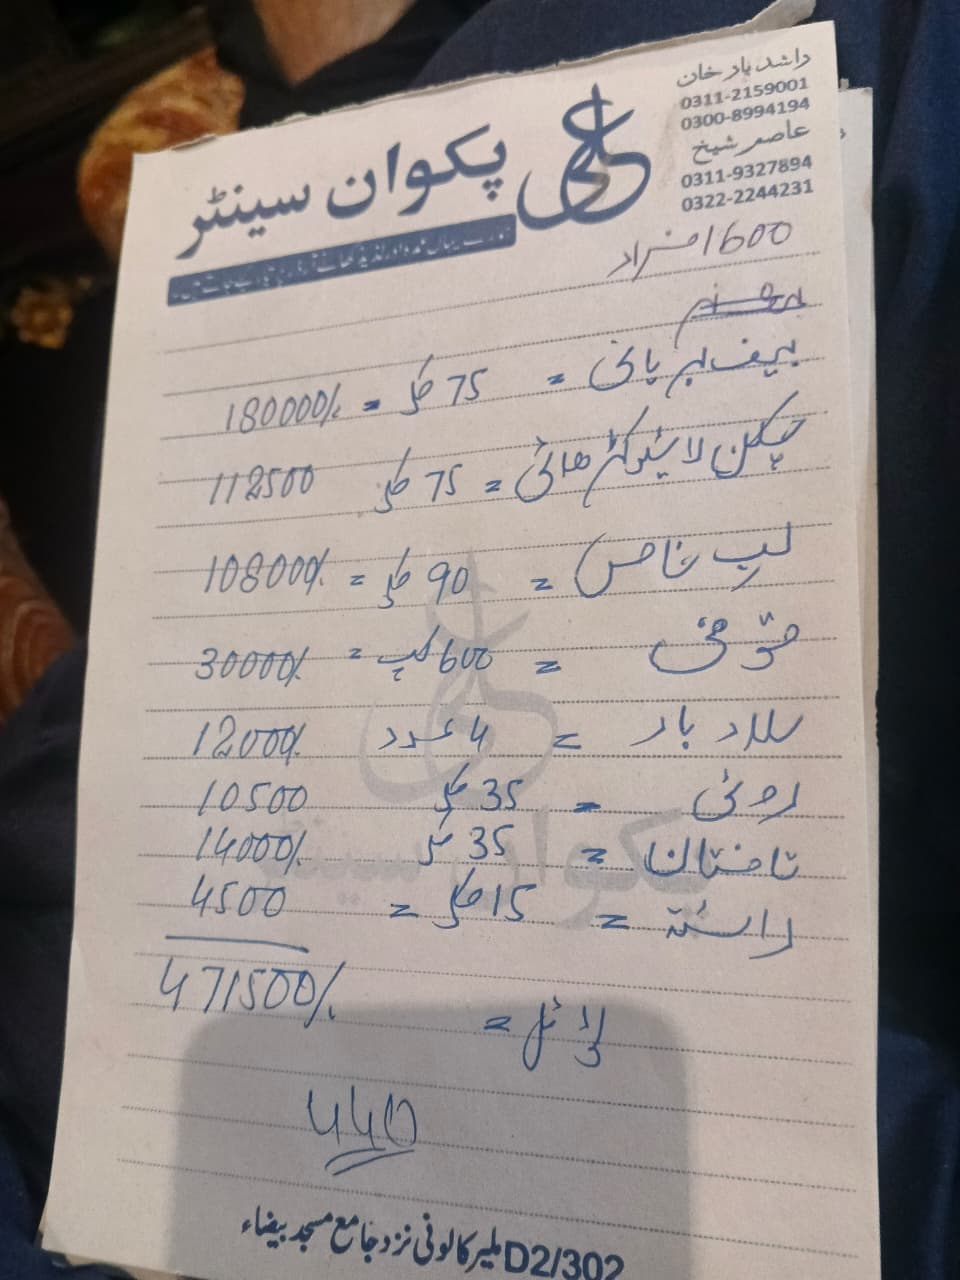 راشد یار خان
0311-2159001
0300-8994194
عاصم شیخ
0311-9327894
0322-2244231
پکوان سینٹر
600 افراد
بیف بریانی = 75 کلو = 180000/.
چکن کڑھائی = 75 کلو 112500
لب خاص = 90 کلو = 108000/.
= 600 کپ = 30000/.
سلاد بار = 4 عدد 12000/.
روٹی = 35 کلو 10500
تافتان = 35 کلو 14000/.
رائتہ = 15 کلو = 4500
471500/.
ٹوٹل =
440
D2/302 ملیر کالونی نزد جامع مسجد بیضاء